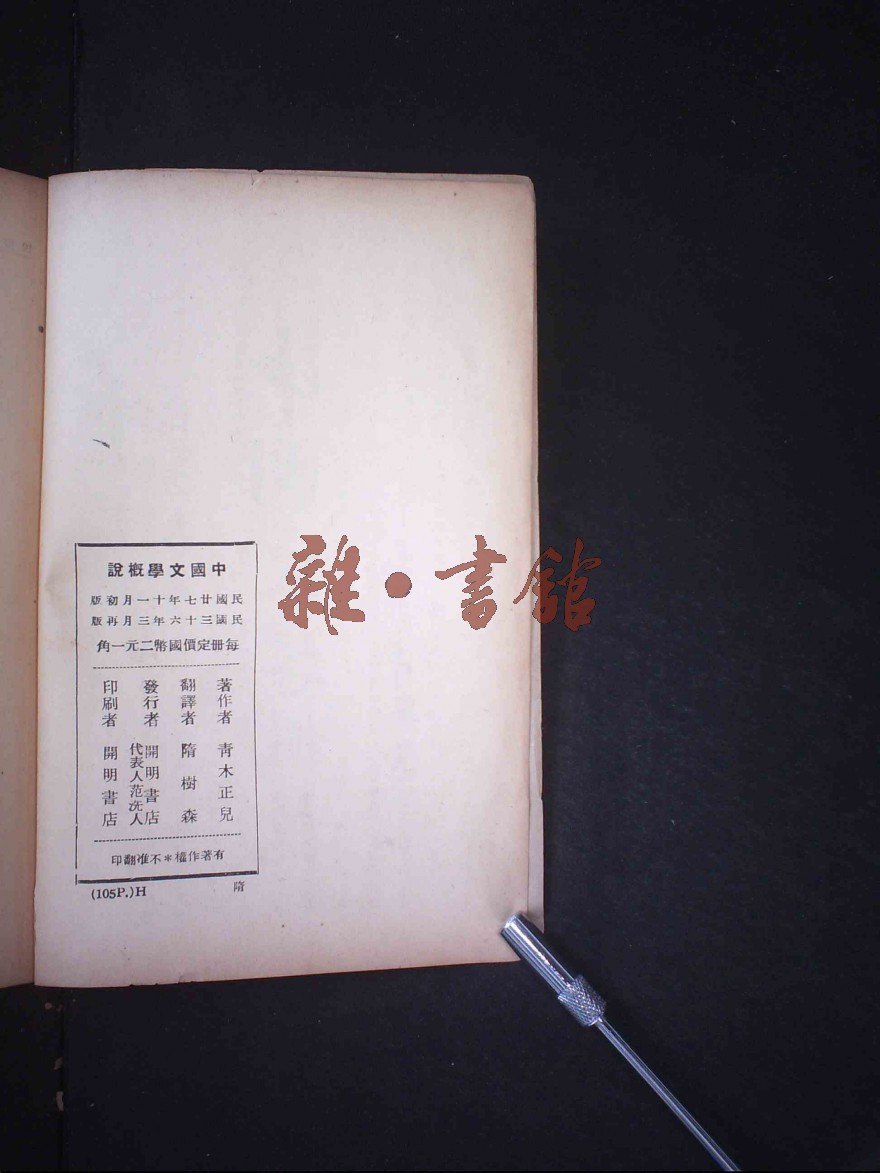 中國文學概說
民國廿七年十一月初版
民國三十六年三月再版
每冊定價國幣二元一角
著作者 青木正兒
翻譯者 隋樹森
發行者 開明書店
代表人范洗人
印刷者 開明書店
有著作權*不准翻印
(105P.)H 隋
雜·書館